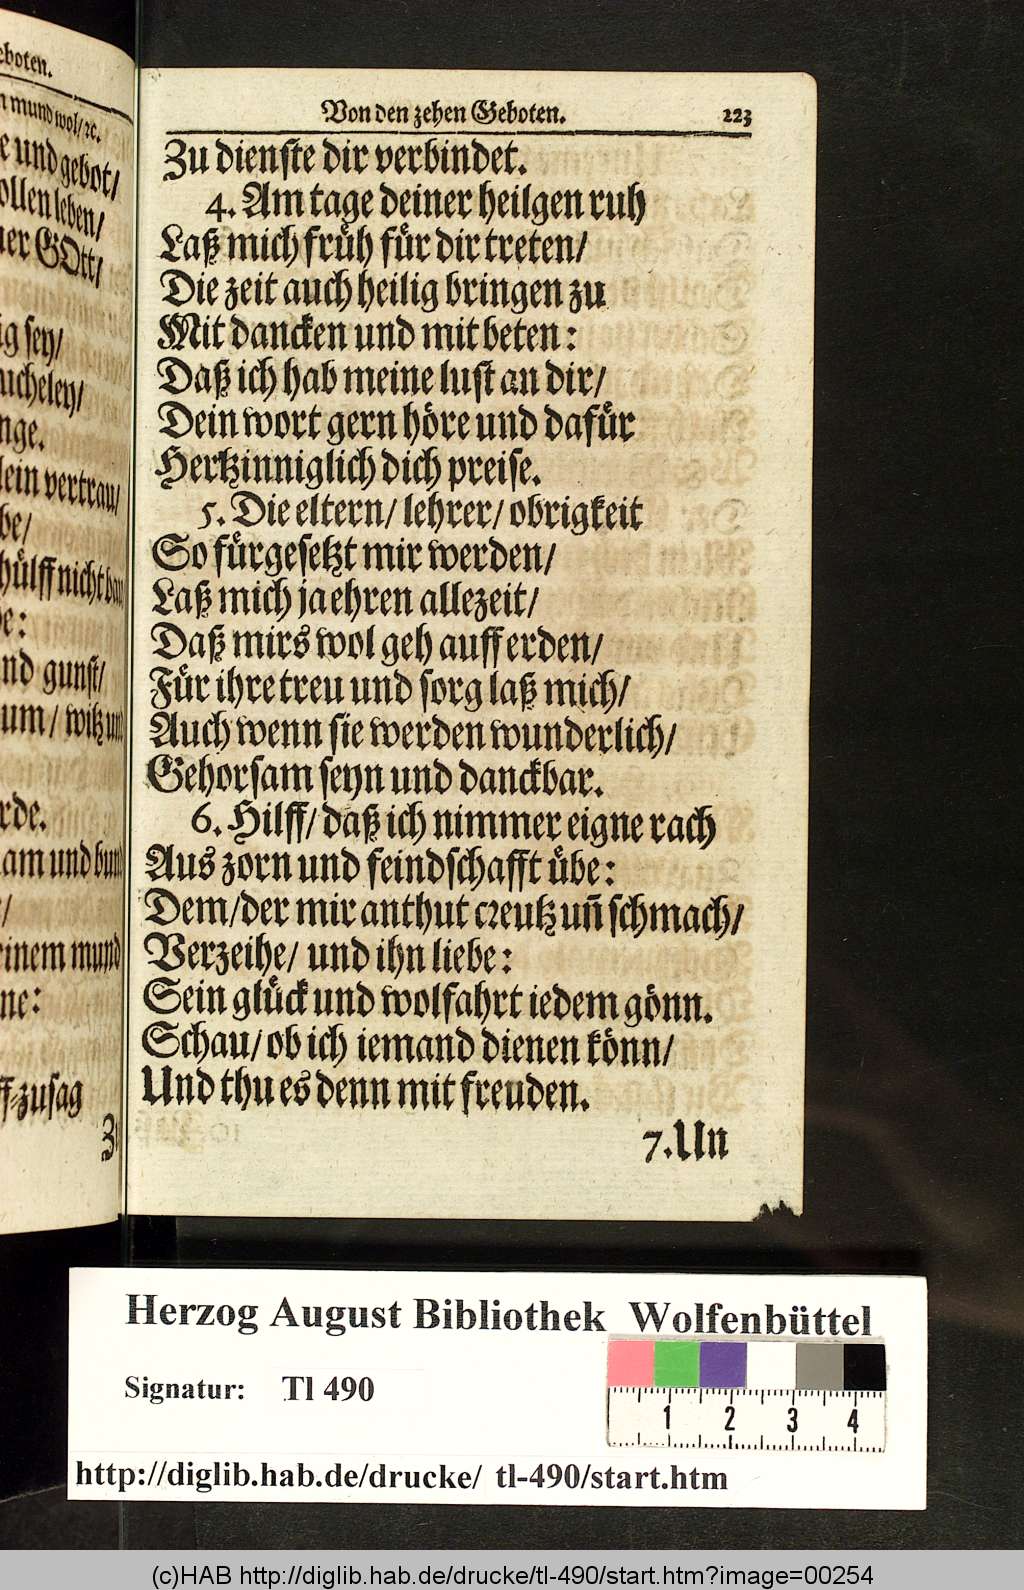 eboten.
n mund wol/ ꝛc.
e und gebot/
ollen leben/
ner GOtt/
ig sey/
ucheley/
nge.
lein vertrau/
be/
hülff nicht
be:
nd gunst/
um/ witz
rde.
am und
/
einem mund
ne:
ff-zusag
Von den zehen Geboten. 223
Zu dienste dir verbindet.
4. Am tage deiner heilgen ruh
Laß mich früh für dir treten/
Die zeit auch heilig bringen zu
Mit dancken und mit beten:
Daß ich hab meine lust an dir/
Dein wort gern höre und dafür
Hertzinniglich dich preise.
5. Die eltern/ lehrer/ obrigkeit
So fürgesetzt mir werden/
Laß mich ja ehren allezeit/
Daß mirs wol geh auff erden/
Für ihre treu und sorg laß mich/
Auch wenn sie werden wunderlich/
Gehorsam seyn und danckbar.
6. Hilff/ daß ich nimmer eigne rach
Aus zorn und feindschafft übe:
Dem/der mir anthut creutz uñ schmach/
Verzeihe/ und ihn liebe:
Sein glück und wolfahrt iedem gönn.
Schau/ ob ich iemand dienen könn/
Und thu es denn mit freuden.
7. Un
Herzog August Bibliothek Wolfenbüttel
Signatur: Tl 490
1 2 3 4
http://diglib.hab.de/drucke/ tl-490/start.htm
(c)HAB http://diglib.hab.de/drucke/tl-490/start.htm?image=00254